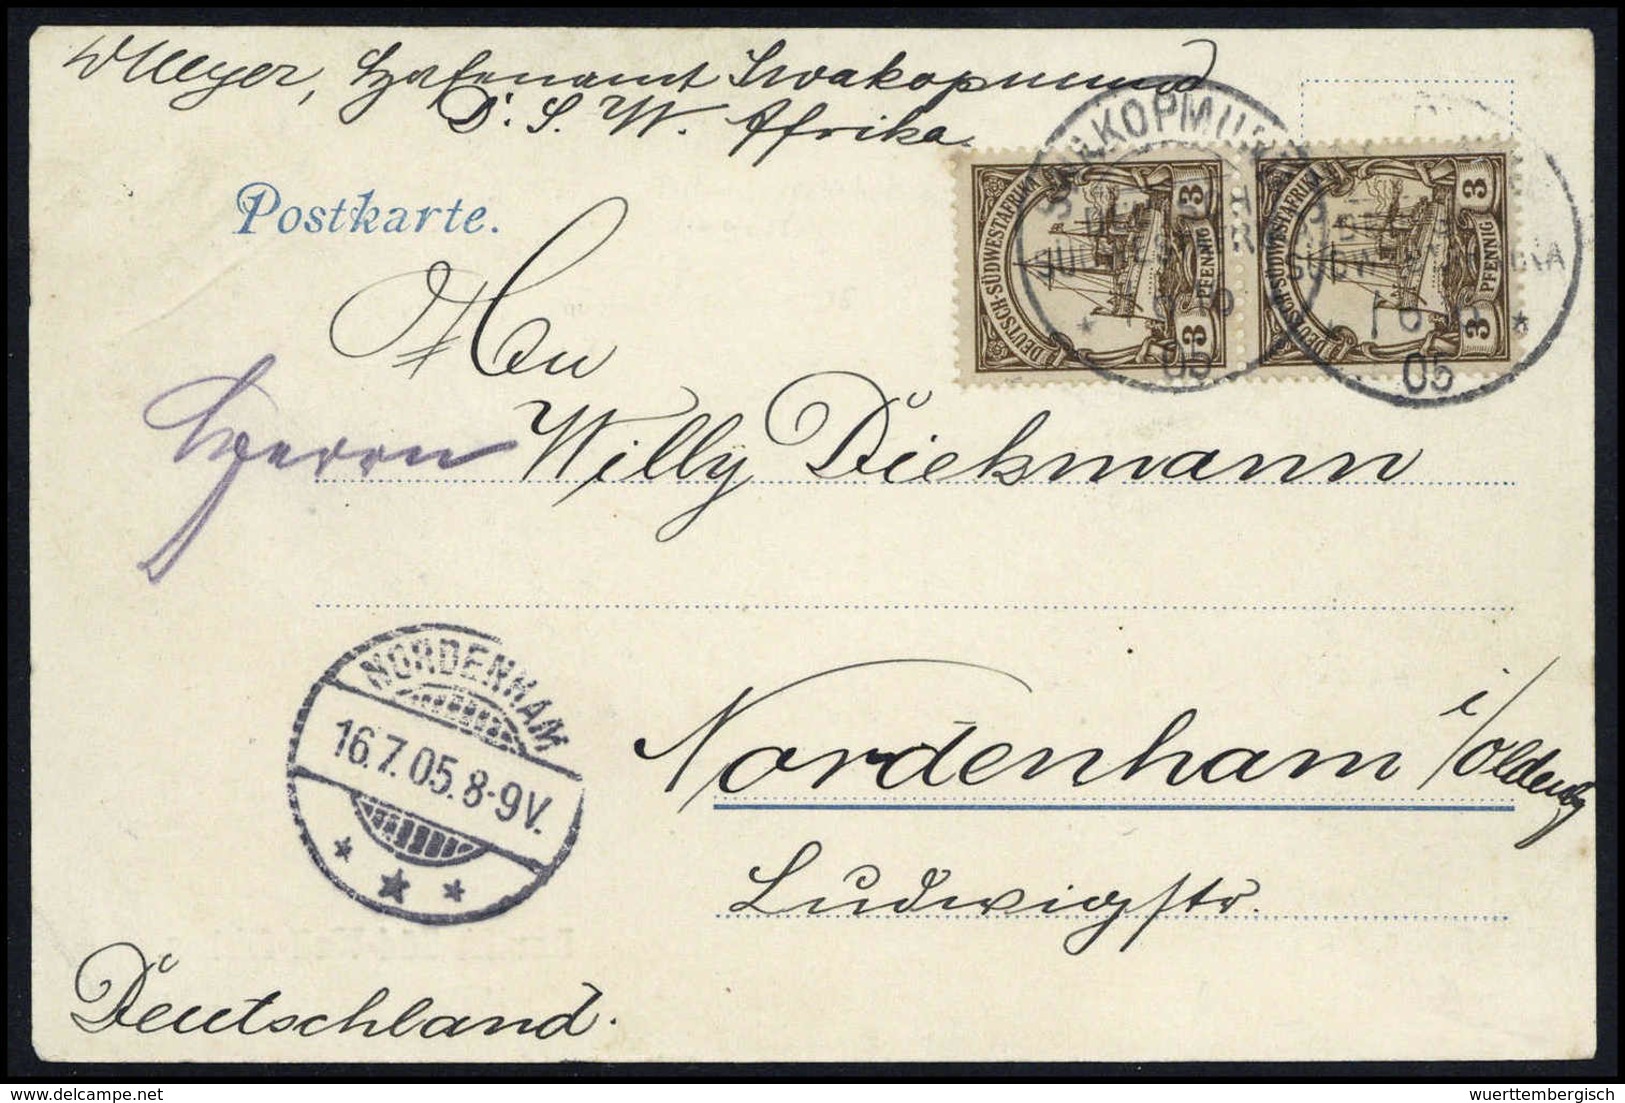 W Meyer, Hafenamt Swakopmund
D. S. W. Afrika
Postkarte.
SWAKOPMUND
DEUTSCH-
SÜDWESTAFRIKA
05
DEUTSCH-SÜDWESTAFRIKA
3 PFENNIG 3
DEUTSCH-SÜDWESTAFRIKA
3 PFENNIG 3
SÜDWESTAFRIKA
* 16 6 *
05
Herrn Willy Diekmann
NORDENHAM
16.7.05.8-9V.
Nordenham i/Oldenbg
Ludwigstr.
Deutschland.
wuerttembergisch